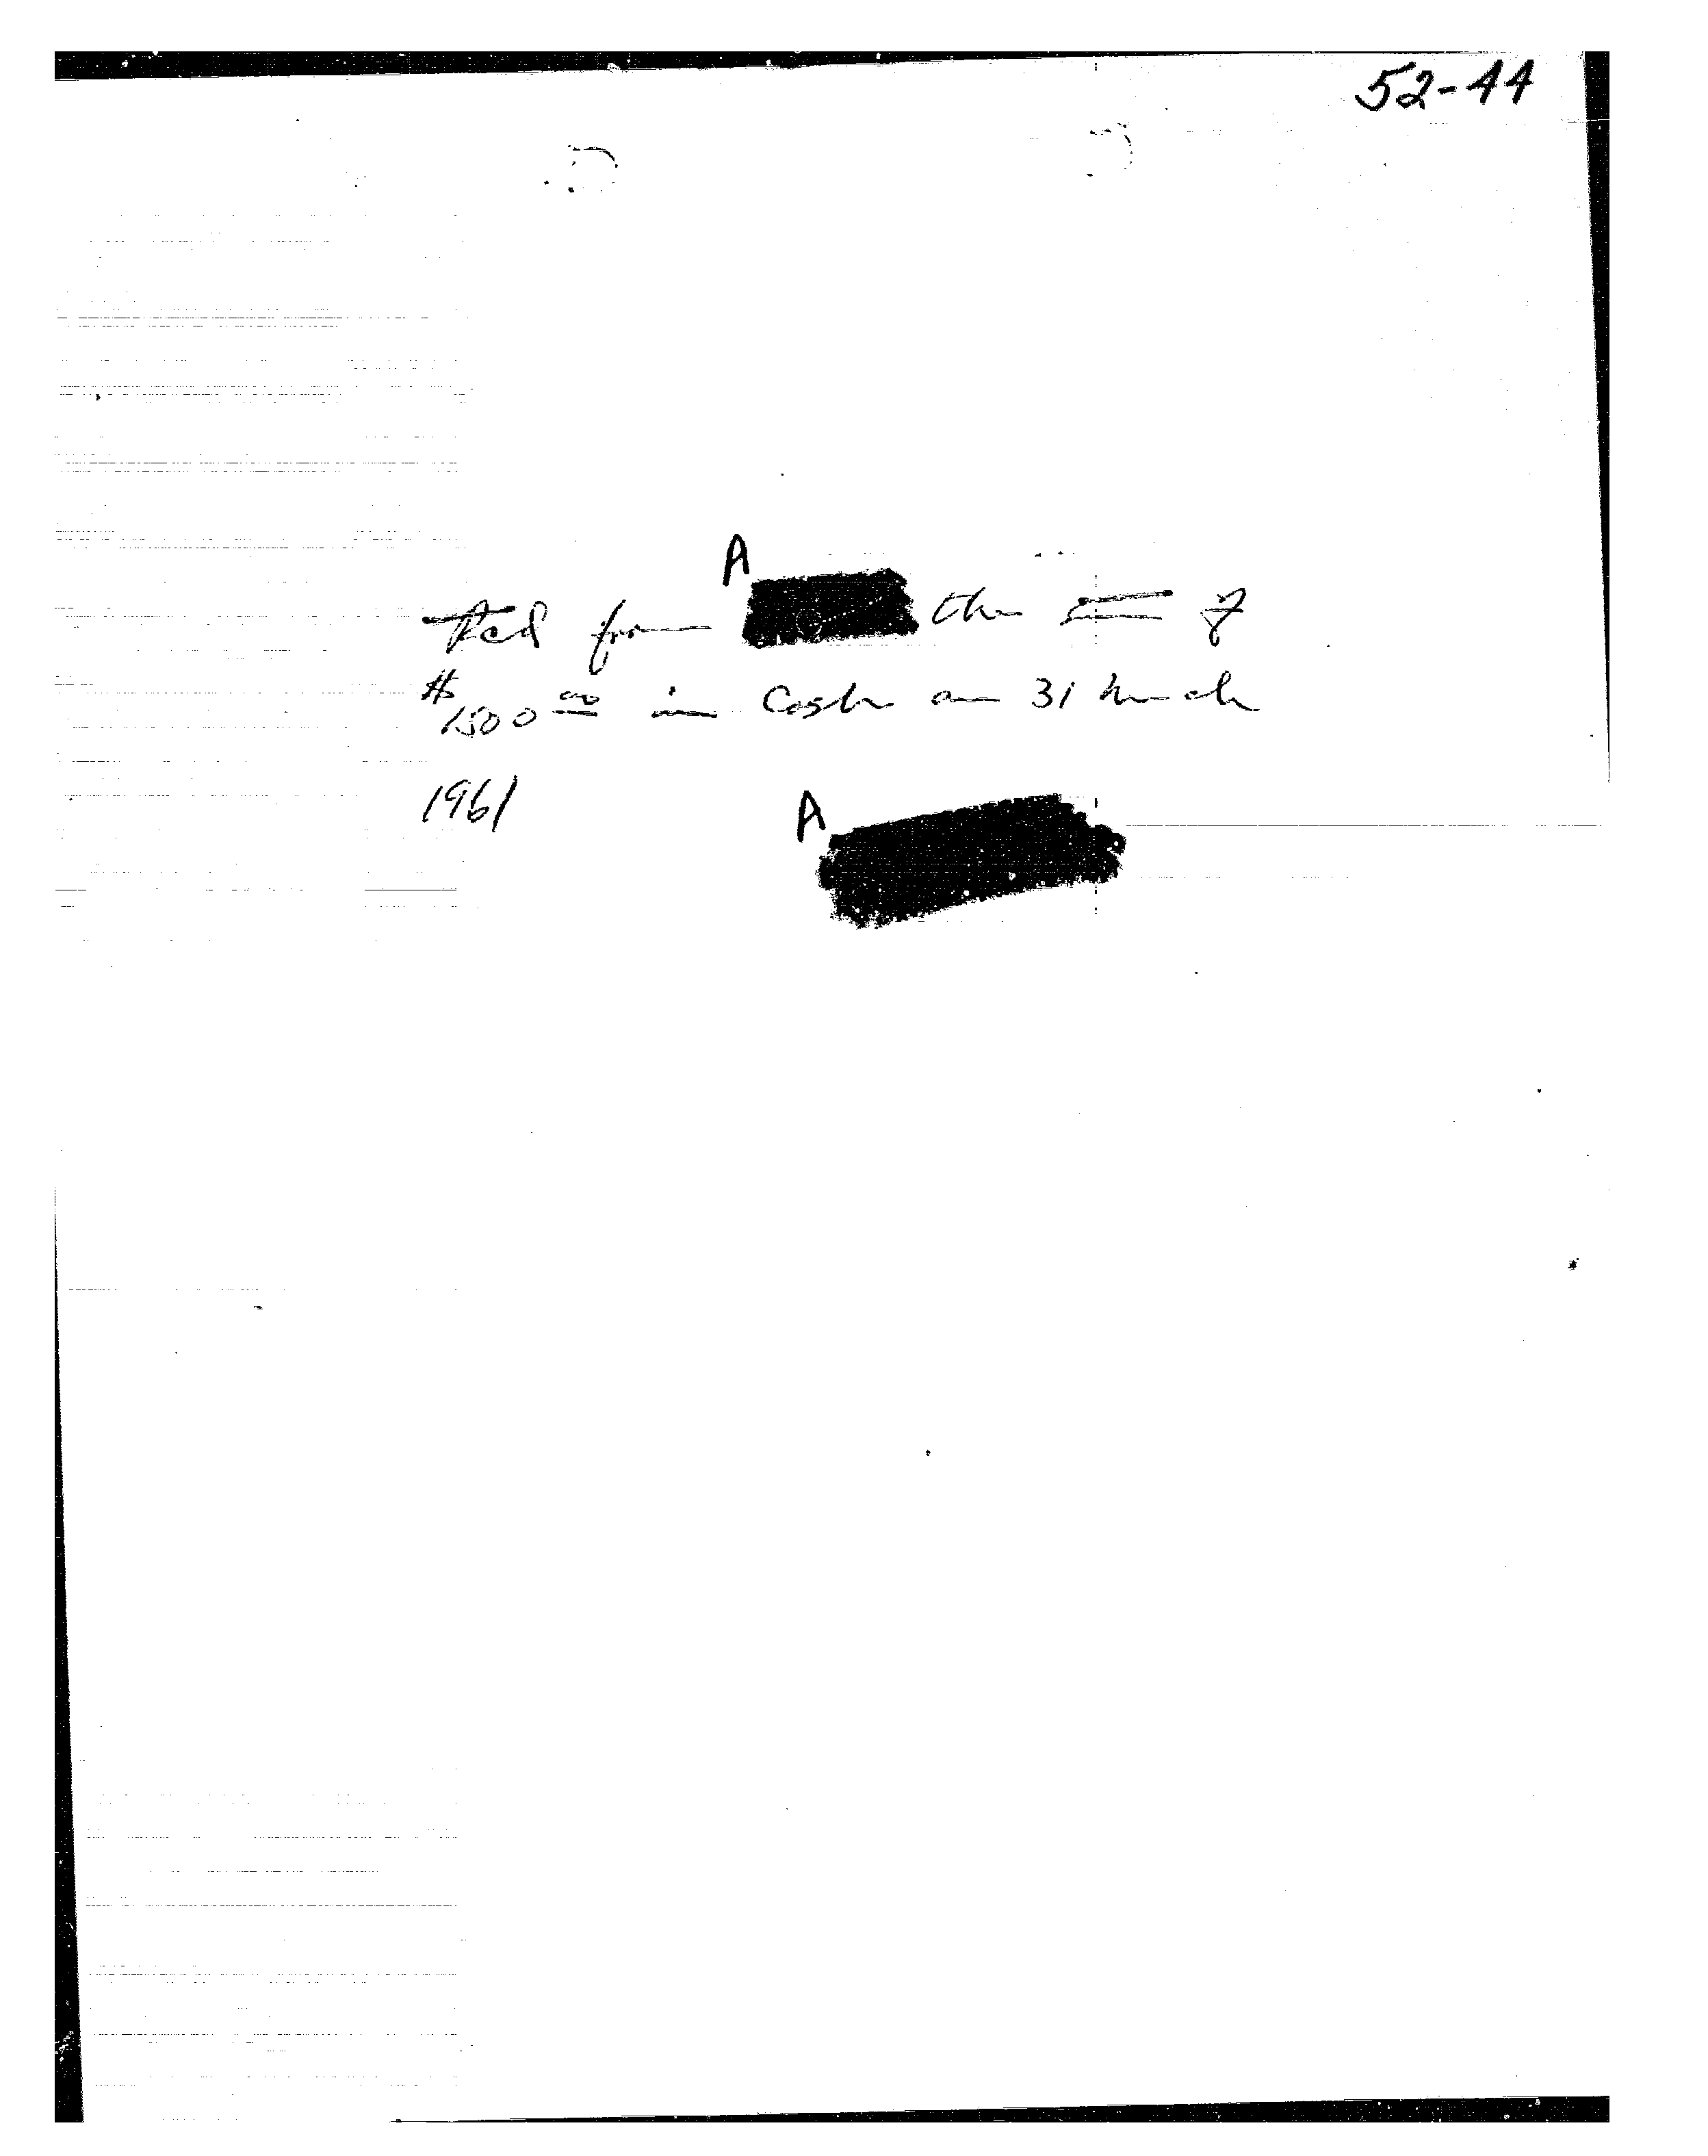 52-44
A
Rcd from the sum of
$1500 00 in Cash on 31 March
1961
A